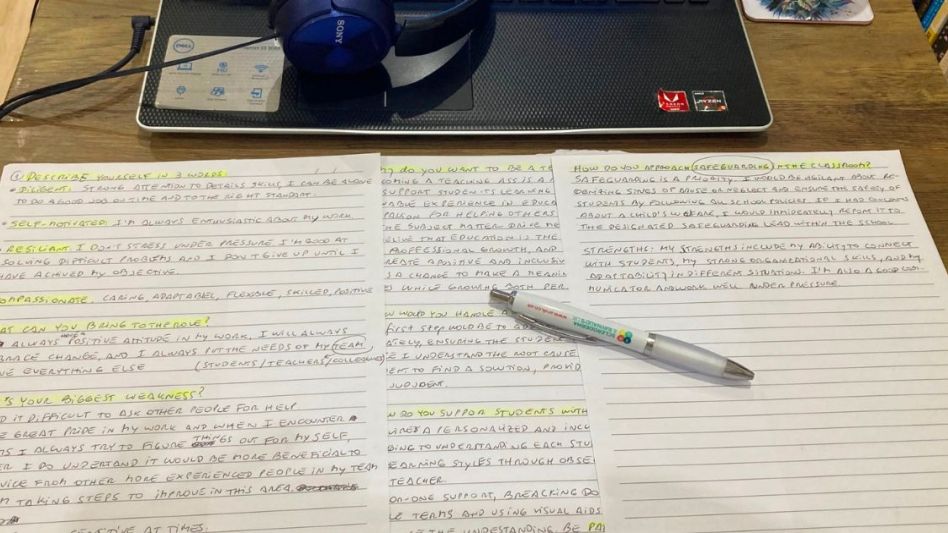 SONY
DELL
HD
RADEON
GRAPHICS
AMD
RYZEN
① DESCRIBE YOURSELF IN 3 WORDS:
• DILIGENT: STRONG ATTENTION TO DETAILS SKILLS I CAN BE ABOVE
TO DO A GOOD JOB ON TIME AND TO THE RIGHT STANDART.
• SELF-MOTIVATED: I'M ALWAYS ENTHUSIASTIC ABOUT MY WORK
RESILIANT: I DON'T STRESS UNDER PRESSURE I'M GOOD AT
SOLVING DIFFICULT PROBLEMS AND I DON'T GIVE UP UNTIL I
HAVE ACHIVED MY OBJECTIVE.
COMPASSIONATE, CARING, ADAPTABEL, FLEXIBLE, SKILLED, POSITIVE
AT CAN YOU BRING TO THE ROLE?
ALWAYS POSITIVE ATITUDE IN MY WORK, I WILL ALWAYS
BRACE CHANGE, AND I ALWAYS PUT THE NEEDS OF MY (TEAM)
VE EVERYTHING ELSE (STUDENTS/TEACHERS/COLLEGUES)
'S YOUR BIGGEST WEAKNESS?
D IT DIFFICULT TO ASK OTHER PEOPLE FOR HELP.
E GREAT PRIDE IN MY WORK AND WHEN I ENCOUNTER
MS I ALWAYS TRY TO FIGURE THINGS OUT FOR MY SELF,
ER I DO UNDERTAND IT WOULD BE MORE BENEFICIAL TO
VICE FROM OTHER MORE EXPERIENCED PEOPLE IN MY TEAM
M TAKING STEPS TO IMPROVE IN THIS AREA.
SITIVE AT TIMES.
Y DO YOU WANT TO BE A TE
COMING A TEACHING ASSIS A
SUPPORT STUDENTS LEARNING
ABLE EXPERIENCE IN EDUCA
PASSION FOR HELPING OTHERS
THE SUBJECT MATTER DRIVE ME
ELIVE THAT EDUCATION IS THE
PROFESSIONAL GROWTH, AND
REATE A POSITIVE AND INCLUSIV
S A CHANGE TO MAKE A MEANIN
D WHILE GROWING BOTH PER
OW WOULD YOU HANDLE A
FIRST STEP WOLD BE TO
ATELY, ENSURING THE STUDENT
E I UNDERSTAND THE ROOT CAUSE
ENT TO FIND A SOLUTION, PROVID
JUDJDENT.
W DO YOU SUPPORT STUDENTS WITH
UIRES A PERSONALIZED AND INCL
DING TO UNDERSTANDING EACH STU
EARNING STYLES THROUGH OBSE
TEACHER.
ON-ONE SUPPORT, BREACKING DO
LE TERMS AND USING VISUAL AIDS
THE UNDERSTANDING. BE PA
HOW DO YOU APPROACH SAFEGUARDING IN THE CLASSROOM?
SAFEGUARDING IS A PRIORITY. I WOULD BE VIGILANT ABOUT RE-
COGNIZING SINGS OF ABUSE OR NEGLECT AND ENSURE THE SAFETY OF
STUDENTS BY FOLLOWING ALL SCHOOL POLICIES. IF I HAD CONCERNS
ABOUT A CHILD'S WELFARE, I WOULD IMMIDIATELY REPORT IT TO
THE DESIGNATED SAFEGUARDING LEAD WITHIN THE SCHOOL
STRENGTHS: MY STRENGTHS INCLUDE MY ABILITY TO CONNECT
WITH STUDENTS, MY STRONG ORGANIZATIONAL SKILLS, AND MY
ADAPTABILITY IN DIFFERENT SITUATIONS. I'M ALSO A GOOD COM-
MUNICATOR AND WORK WELL UNDER PRESSURE.
SCLERODERMA
& RAYNAUD'S UK
www.sruk.co.uk